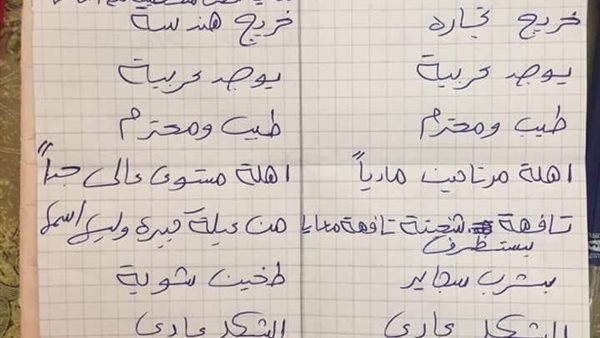 خريج تجاره
يوجد عربية
طيب ومحترم
اهلة مرتاحين مادياً
تافهة شخصية تافهة معايا
بيستظرف
بشرب سجاير
الشكل عادى
خريج هندسة
يوجد عربية
طيب ومحترم
اهلة مستوى عالى جداً
من عيلة كبيره وليهم اسمهم
طخين شوية
الشكل عادى